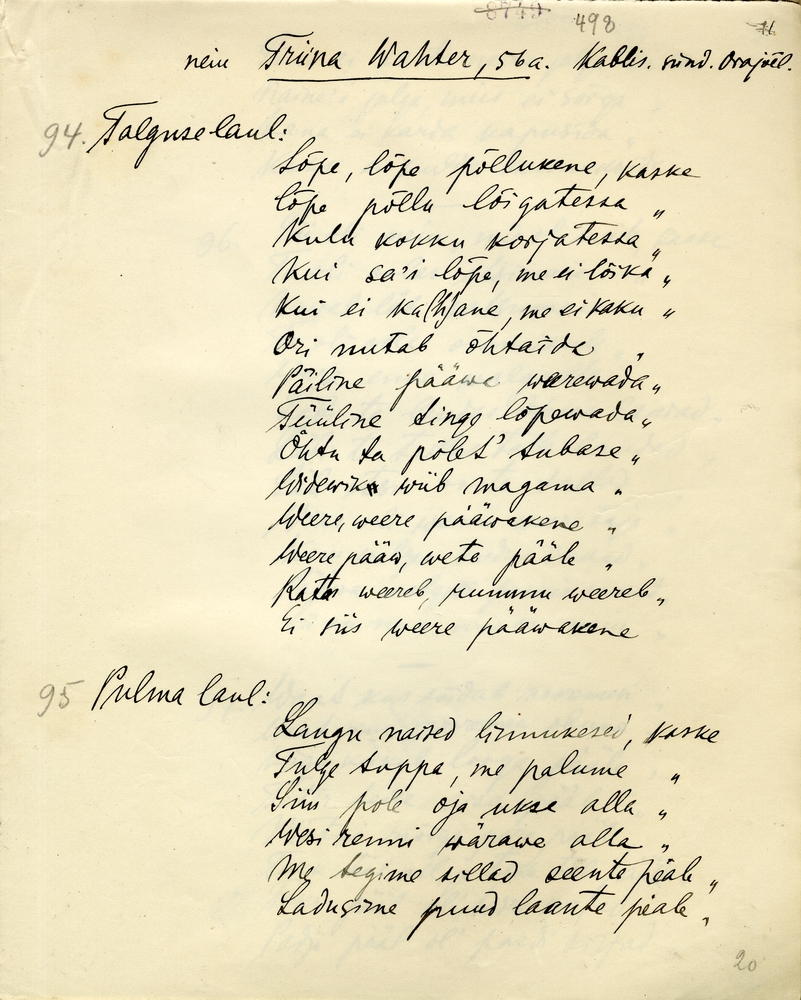 8749 498 11
neiu Triina Wahter, 56 a. Kablis. sünd. Orajõel.
94. Talguselaul:
Lõpe, lõpe põllukene, kaske
lõpe põllu lõigatessa „
Kulu kokku korjatessa „
Kui sa'i lõpe, me ei lõika „
Kui ei ka(h)ane, me ei kaku „
Ori nutab õhtaida „
Päiline pääwa weerewada „
Tüüline tinge lõpewada „
Õhtu ta põlet' tubase „
Widewik wiib magama „
Weere, weere pääwakene „
Weere pääw, wete pääle „
Ratas weereb, rummu weereb „
Ei siis weere pääwakene
95 Pulma laul:
Langu naised linnukesed, kaske
Tulge tuppa, me palume „
Siin pole oja ukse alla „
Wesi renni wärawe alla „
Me tegime sillad seente peale „
Ladusime puud laante peale „
20